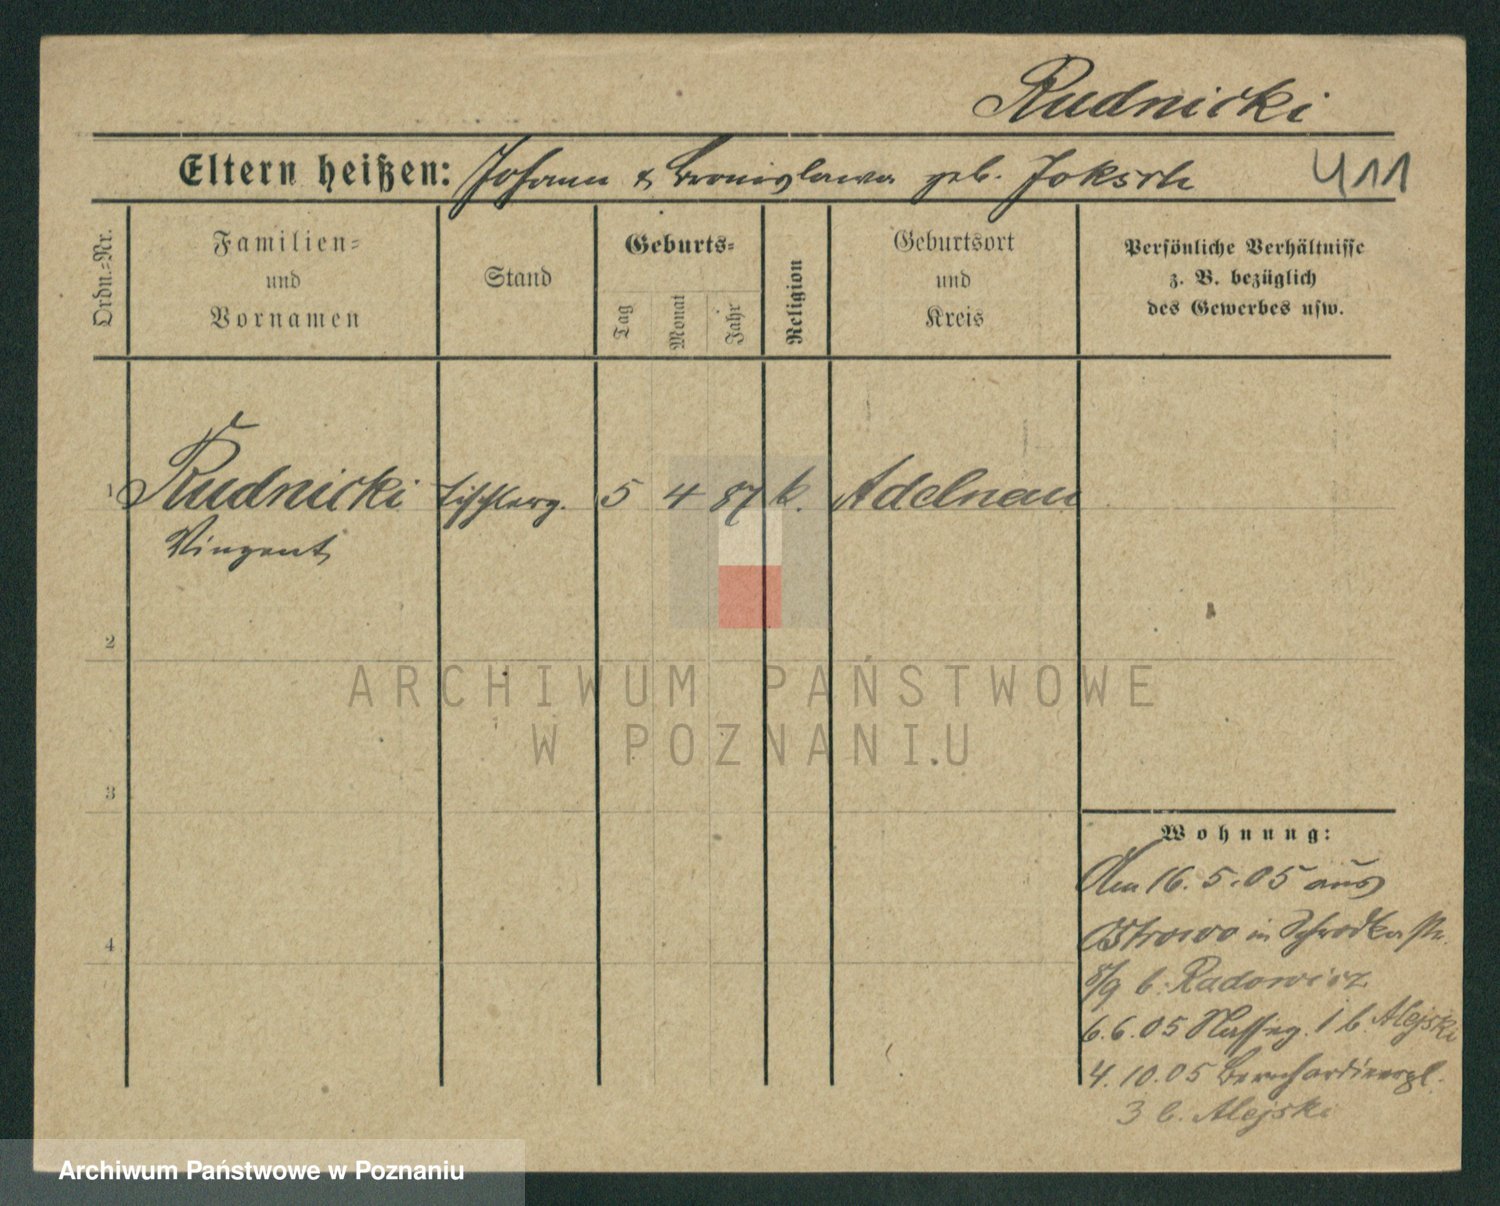 Rudnicki
Eltern heißen: Johann & Bronislawa geb. Joksch 411
Ordn.-Nr.
Familien-
und
Vornamen
Stand
Geburts-
Tag
Monat
Jahr
Religion
Geburtsort
und
Kreis
Persönliche Verhältnisse
z. B. bezüglich
des Gewerbes usw.
1 Rudnicki Tischlerg. 5 4 87 k. Adelnau
Vinzent
2
ARCHIWUM PAŃSTWOWE
W POZNANIU
3
Wohnung:
Am 16.5.05 aus
4 Ostrowo in Schrodkastr.
8/9 b. Radowicz
6.6.05 1 b. Alejski
4.10.05 Bernhardinerpl.
3 b. Alejski
Archiwum Państwowe w Poznaniu